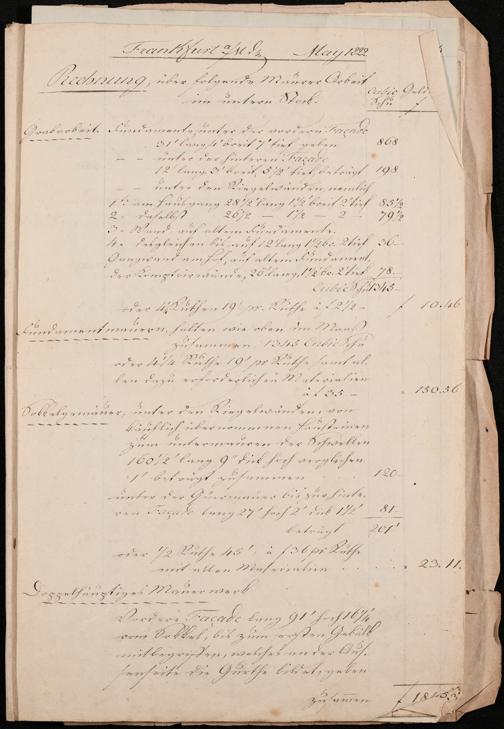 Frankfurt a/M d. May 1822
Rechnung, über folgende Maurer Arbeit
im untern Stock.
Cubic Schu
Geld f
Grabarbeit. Fundamente, unter der vordern Façade
31' lang 4' breit 7' tief geben 868
— — unter der hinteren Façade
12' lang 3' breit 5 1/2' tief, beträgt 198
— — unter den Riegelwänden, nemlich
1. am Hausgang 28 1/2' lang 1 1/2' breit 2' tief 85 1/2
2. daselbst 26 1/2 — 1 1/2 — 2 — 79 1/2
3. Wand, auf altem Fundamente.
4. desgleichen bis auf 12' lang 1 1/2 br. 2' tief 36
Gangwand am Hof, auf altem Fundament,
der Comptoirwände, 26' lang, 1 1/2 br. 2' tief 78
Cubic Schu 1345
oder 4 1/4 Ruthen 19' pr. Ruthe à f 2 1/2 — f 10.46
Fundamentmauern, halten wie oben im Maas
zusammen 1345 Cubic Schu
oder 4 1/4 Ruthe 19' pr Ruthe samt al-
len dazu erforderlichen Materialien
à f 35 — 150.56
Sokkelgemäuer, unter den Riegelwänden, von
käuflich übernommenen Hausteinen
zum untermauren der Schwellen
160 1/2' lang 9" dick hoch verglichen
1' beträgt zusammen 120
unter der Quermauer bis zur hinte-
ren Façade lang 27' hoch 2' dick 1 1/2' 81
beträgt 201'
oder 1/2 Ruthe 45' à f 36 pr Ruthe
mit allen Materialien 23.11
Doppelhäuptiges Mauerwerk
Vordere Façade lang 91' hoch 16 1/4
vom Sokkel, bis zum ersten Gebälk
mitbegriffen, welches an der Aus-
senseite die Gurthe bildet, geben
zusammen f 184